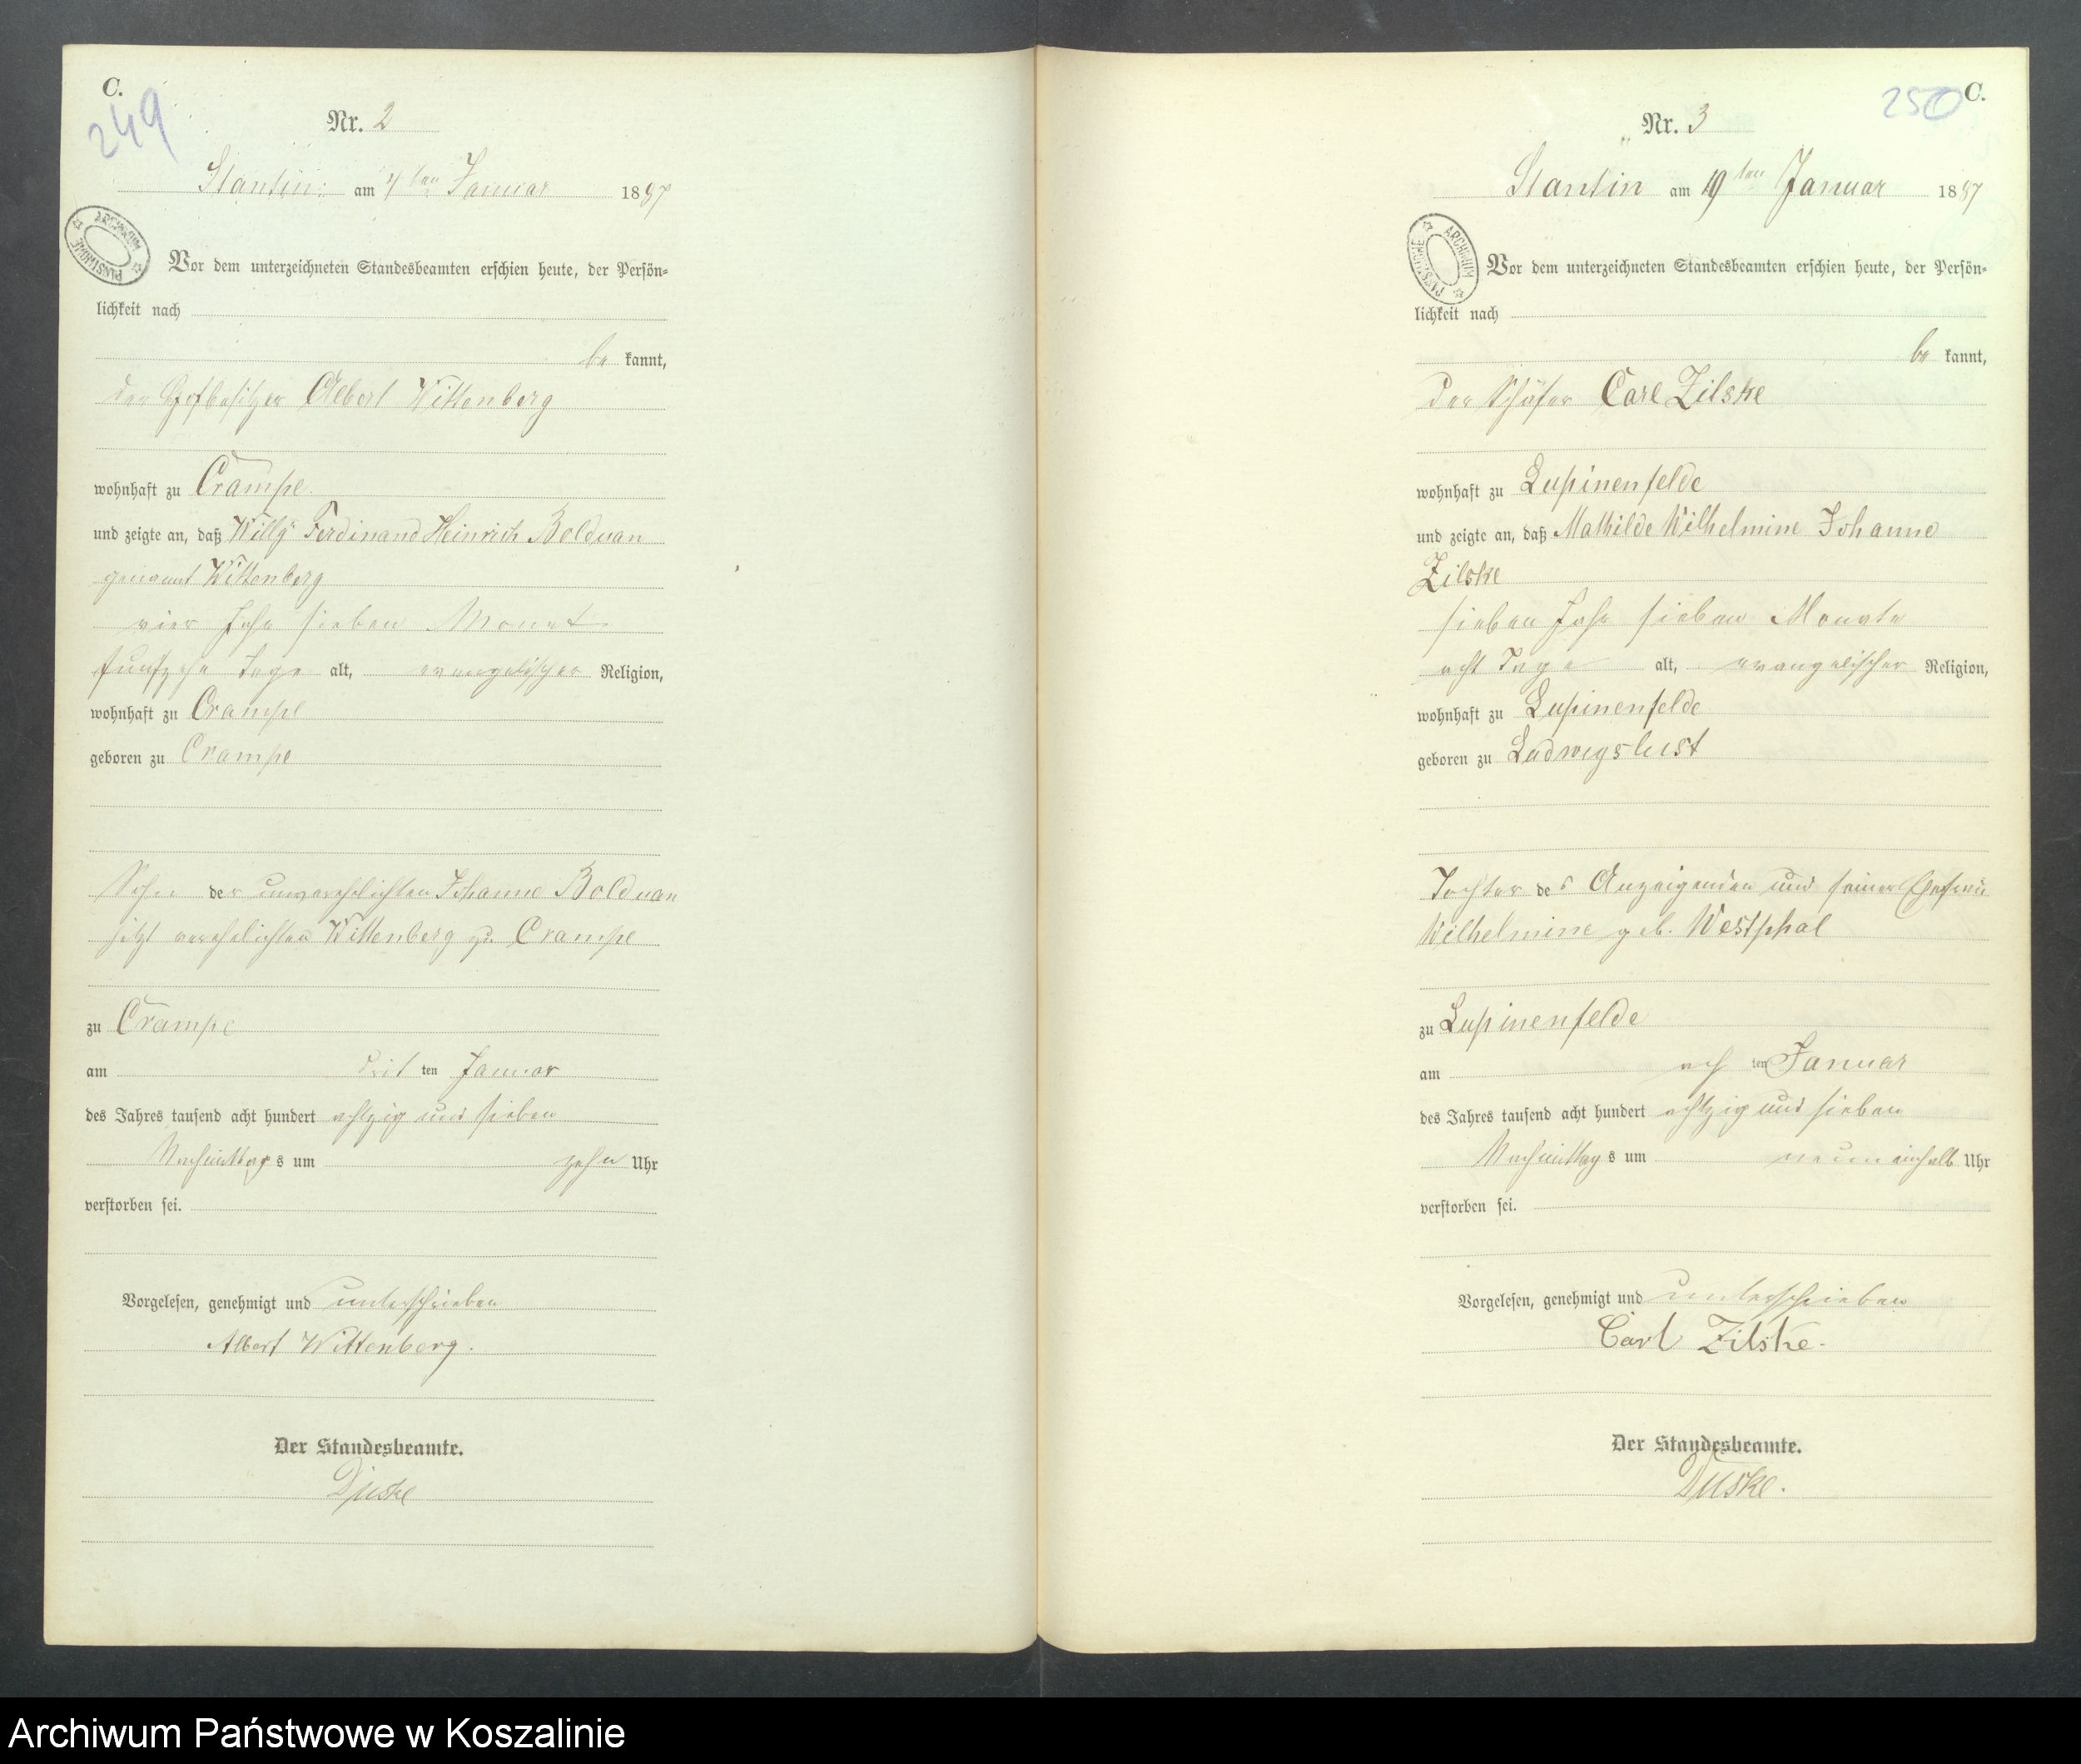 C.
249
Nr. 2
Stantin am 4ten Januar 1887
ARCHIWUM PAŃSTWOWE
Vor dem unterzeichneten Standesbeamten erschien heute, der Persön-
lichkeit nach
be kannt,
der Hofbesitzer Albert Wittenberg
wohnhaft zu Crampe
und zeigte an, daß Willy Ferdinand Heinrich Bolduan
genannt Wittenberg
vier Jahr sieben Monat
funfzehn Tage alt, evangelischer Religion,
wohnhaft zu Crampe
geboren zu Crampe
Sohn der unverehelichten Johanne Bolduan
jetzt verehelichten Wittenberg zu Crampe
zu Crampe
am drit ten Januar
des Jahres tausend acht hundert achtzig und sieben
Nachmittags um zehn Uhr
verstorben sei.
Vorgelesen, genehmigt und unterschrieben
Albert Wittenberg.
Der Standesbeamte.
Duske
250
C.
Nr. 3
Stantin am 19ten Januar 1887
ARCHIWUM PAŃSTWOWE
Vor dem unterzeichneten Standesbeamten erschien heute, der Persön-
lichkeit nach
be kannt,
der Schäfer Carl Zilske
wohnhaft zu Lupinenfelde
und zeigte an, daß Mathilde Wilhelmine Johanne
Zilske
sieben Jahr sieben Monate
acht Tage alt, evangelischer Religion,
wohnhaft zu Lupinenfelde
geboren zu Ludwigslust
Tochter des Anzeigenden und seiner Ehefrau
Wilhelmine geb. Westphal
zu Lupinenfelde
am ach ten Januar
des Jahres tausend acht hundert achtzig und sieben
Nachmittags um neun einhalb Uhr
verstorben sei.
Vorgelesen, genehmigt und unterschrieben
Carl Zilske.
Der Standesbeamte.
Duske.
Archiwum Państwowe w Koszalinie